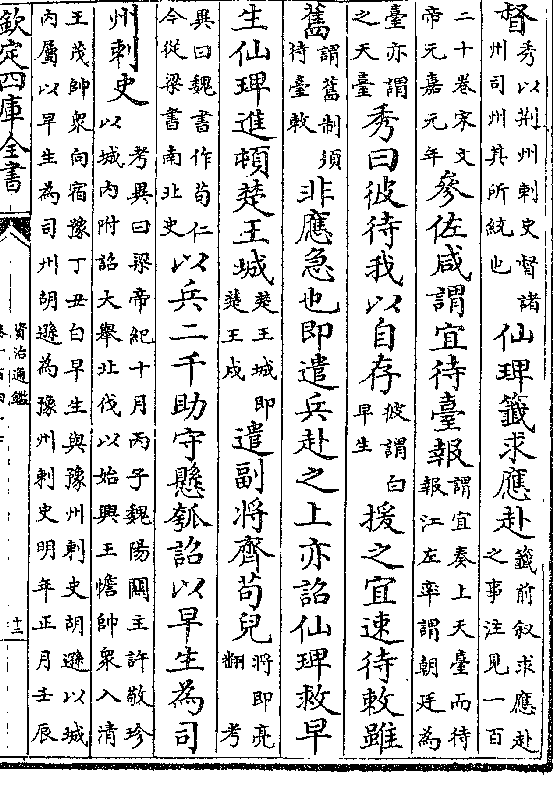 督秀以荆州刺史督諸州司州其所統也仙琕籖求應赴籖前叙求應赴之事注見一百
二十卷宋文帝元嘉元年參佐咸謂宜待臺報謂宜奏上天臺而待報江左率謂朝廷為
臺亦謂之天臺秀曰彼待我以自存彼謂白早生援之宜速待敕雖
舊謂舊制須待臺敕非應急也即遣兵赴之上亦詔仙琕救早
生仙琕進頓楚王城楚王城即楚王戍遣副將齊苟兒將即亮翻考
異曰魏書作苟仁今從梁書南北史以兵二千助守懸瓠詔以早生為司
州刺史考異曰梁帝紀十月丙子魏陽關主許敬珍以城内附詔大舉北伐以始興王憺帥衆入清
王茂帥衆向宿豫丁丑白早生與豫州刺史胡遜以城内屬以早生為司州胡遜為豫州刺史明年正月壬辰
欽定四庫全書
資治通鑑
十二